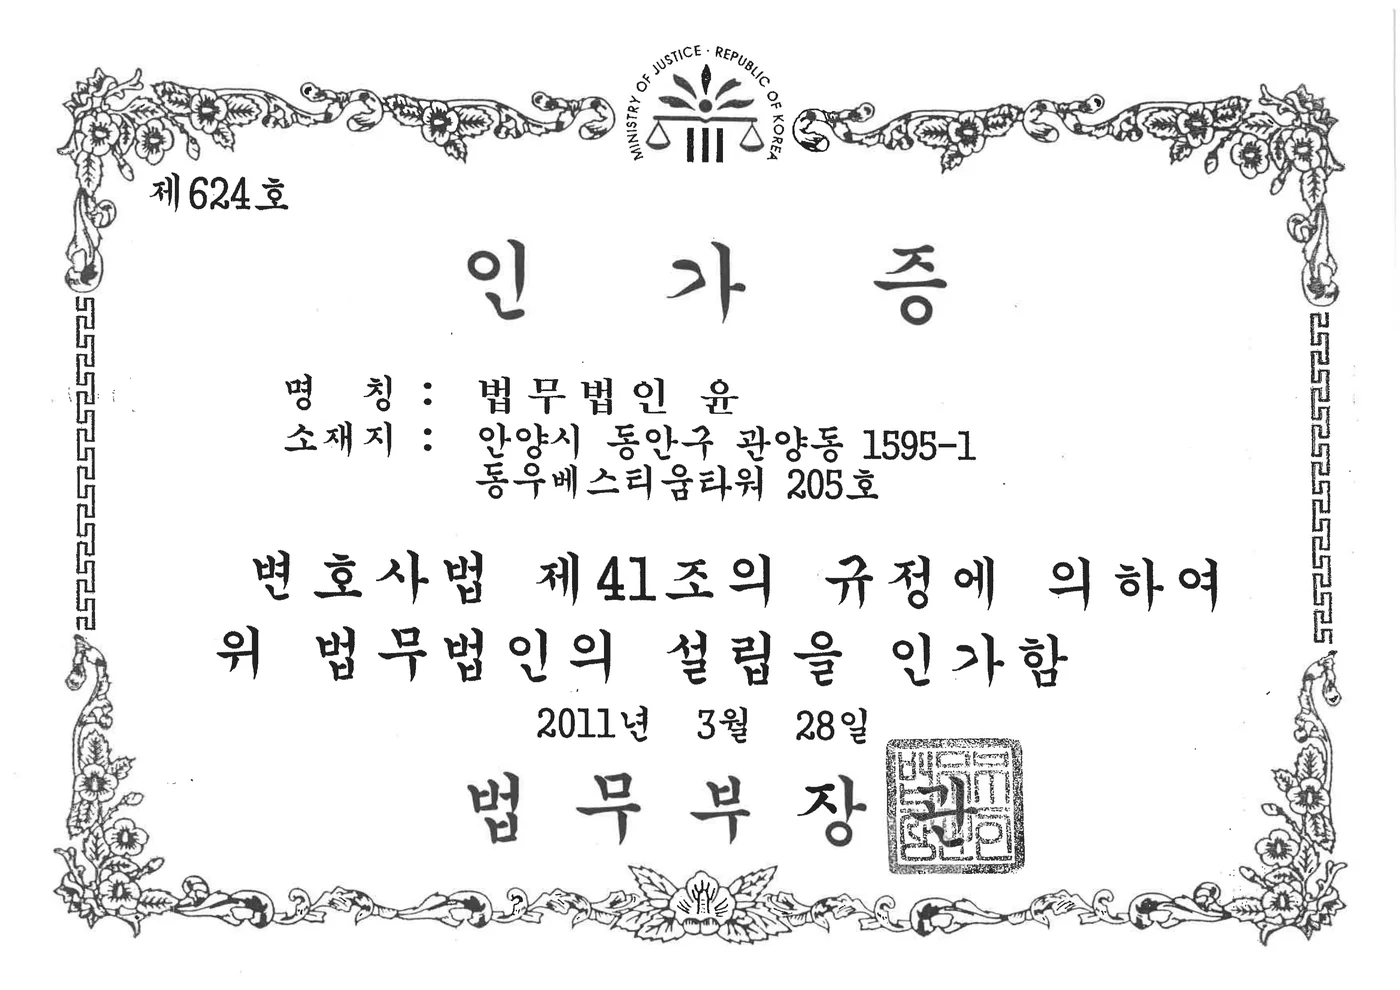 MINISTRY OF JUSTICE · REPUBLIC OF KOREA
제624호
인 가 증
명 칭 : 법무법인 윤
소재지 : 안양시 동안구 관양동 1595-1
동우베스티움타워 205호
변호사법 제41조의 규정에 의하여
위 법무법인의 설립을 인가함
2011년 3월 28일
법무부장관